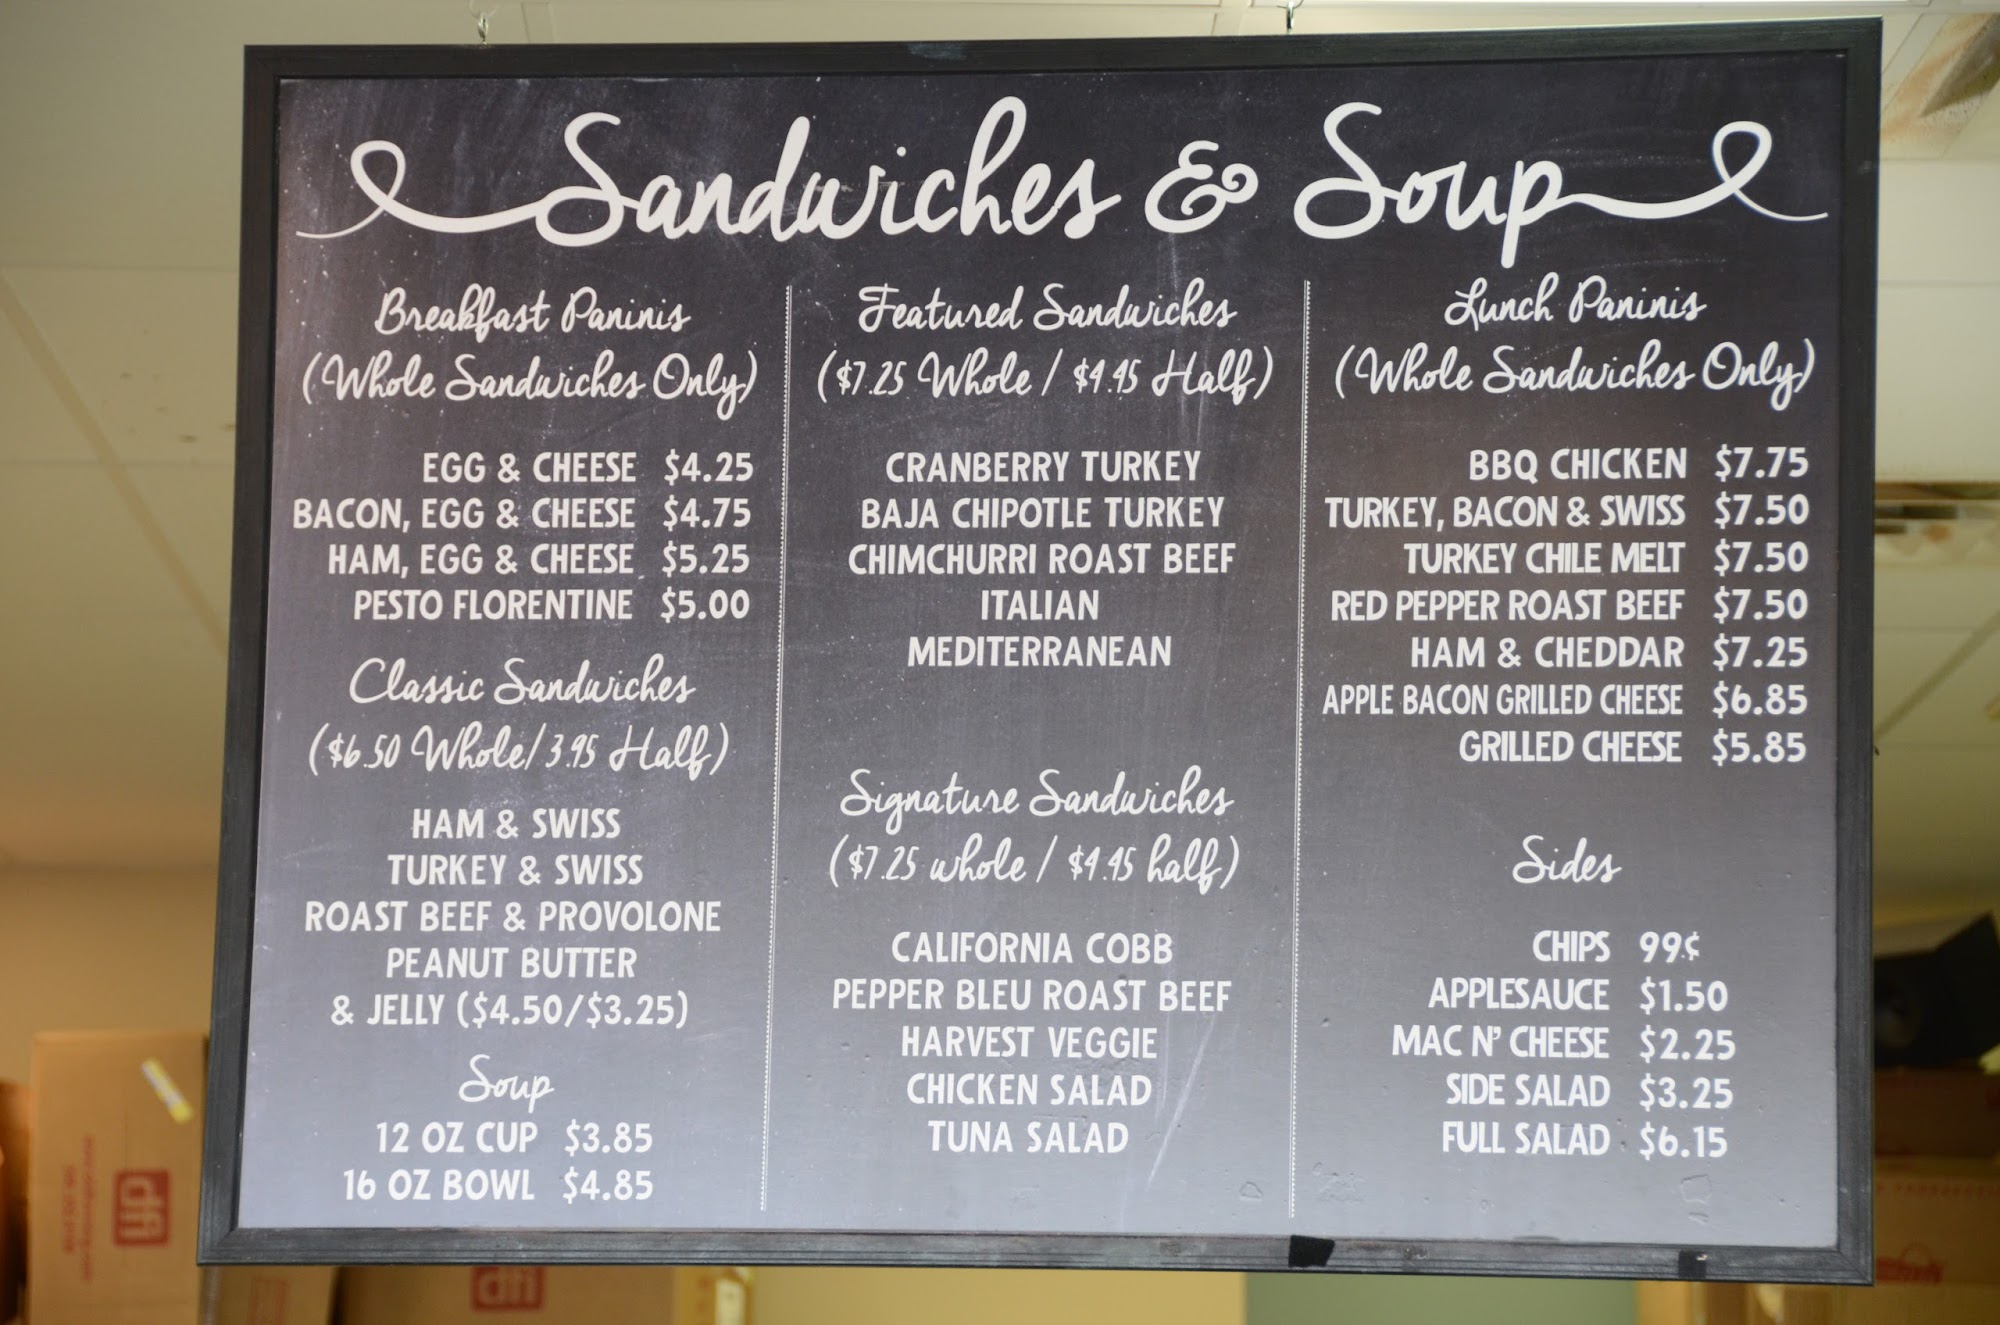 Sandwiches & Soup
Breakfast Paninis
(Whole Sandwiches Only)
EGG & CHEESE $4.25
BACON, EGG & CHEESE $4.75
HAM, EGG & CHEESE $5.25
PESTO FLORENTINE $5.00
Classic Sandwiches
($6.50 Whole/3.95 Half)
HAM & SWISS
TURKEY & SWISS
ROAST BEEF & PROVOLONE
PEANUT BUTTER
& JELLY ($4.50/$3.25)
Soup
12 OZ CUP $3.85
16 OZ BOWL $4.85
Featured Sandwiches
($7.25 Whole / $4.45 Half)
CRANBERRY TURKEY
BAJA CHIPOTLE TURKEY
CHIMCHURRI ROAST BEEF
ITALIAN
MEDITERRANEAN
Signature Sandwiches
($7.25 whole / $4.45 half)
CALIFORNIA COBB
PEPPER BLEU ROAST BEEF
HARVEST VEGGIE
CHICKEN SALAD
TUNA SALAD
Lunch Paninis
(Whole Sandwiches Only)
BBQ CHICKEN $7.75
TURKEY, BACON & SWISS $7.50
TURKEY CHILE MELT $7.50
RED PEPPER ROAST BEEF $7.50
HAM & CHEDDAR $7.25
APPLE BACON GRILLED CHEESE $6.85
GRILLED CHEESE $5.85
Sides
CHIPS 99¢
APPLESAUCE $1.50
MAC N' CHEESE $2.25
SIDE SALAD $3.25
FULL SALAD $6.15
dti
dti